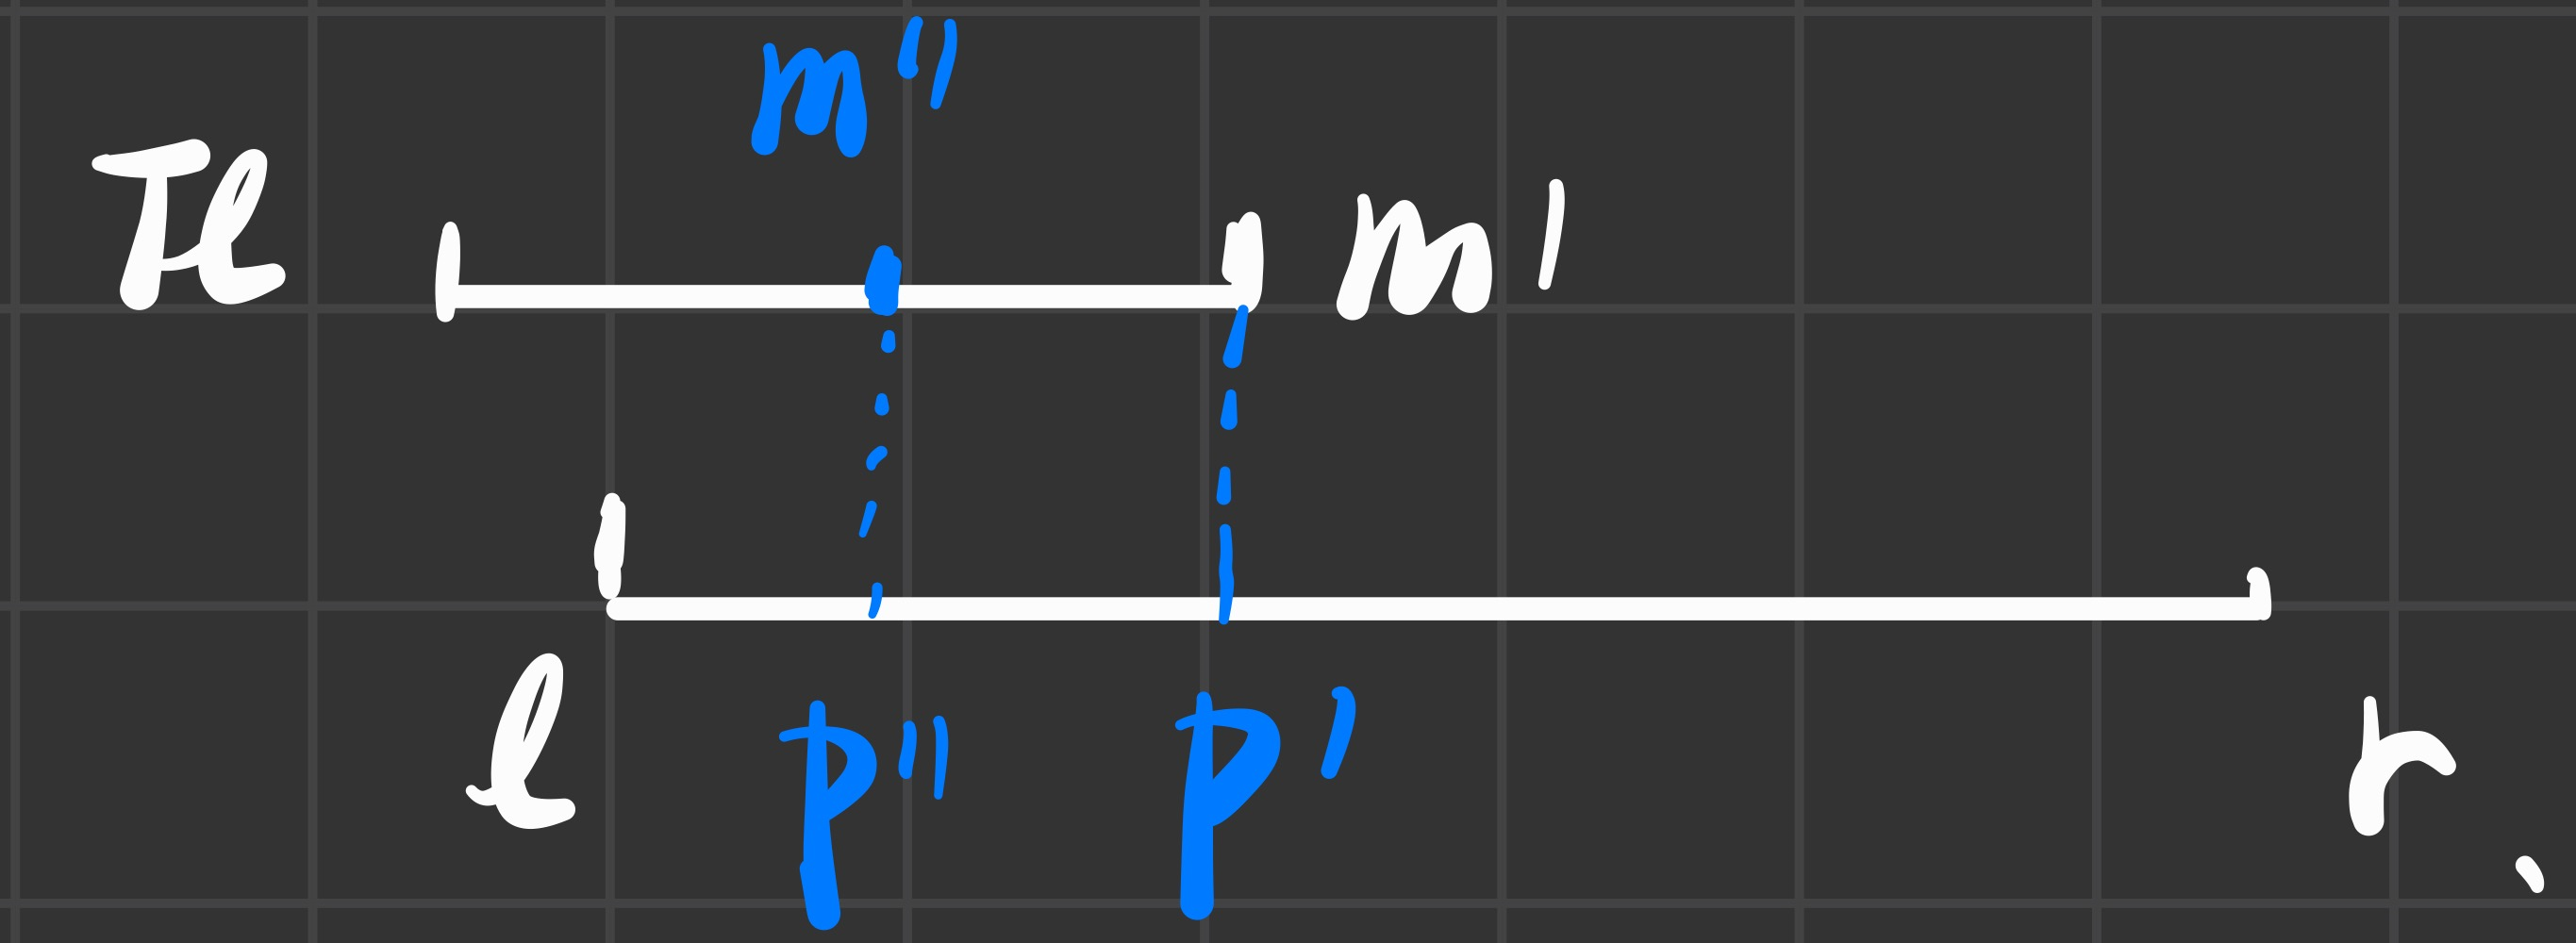 m''
Tl m'
l p'' p' r